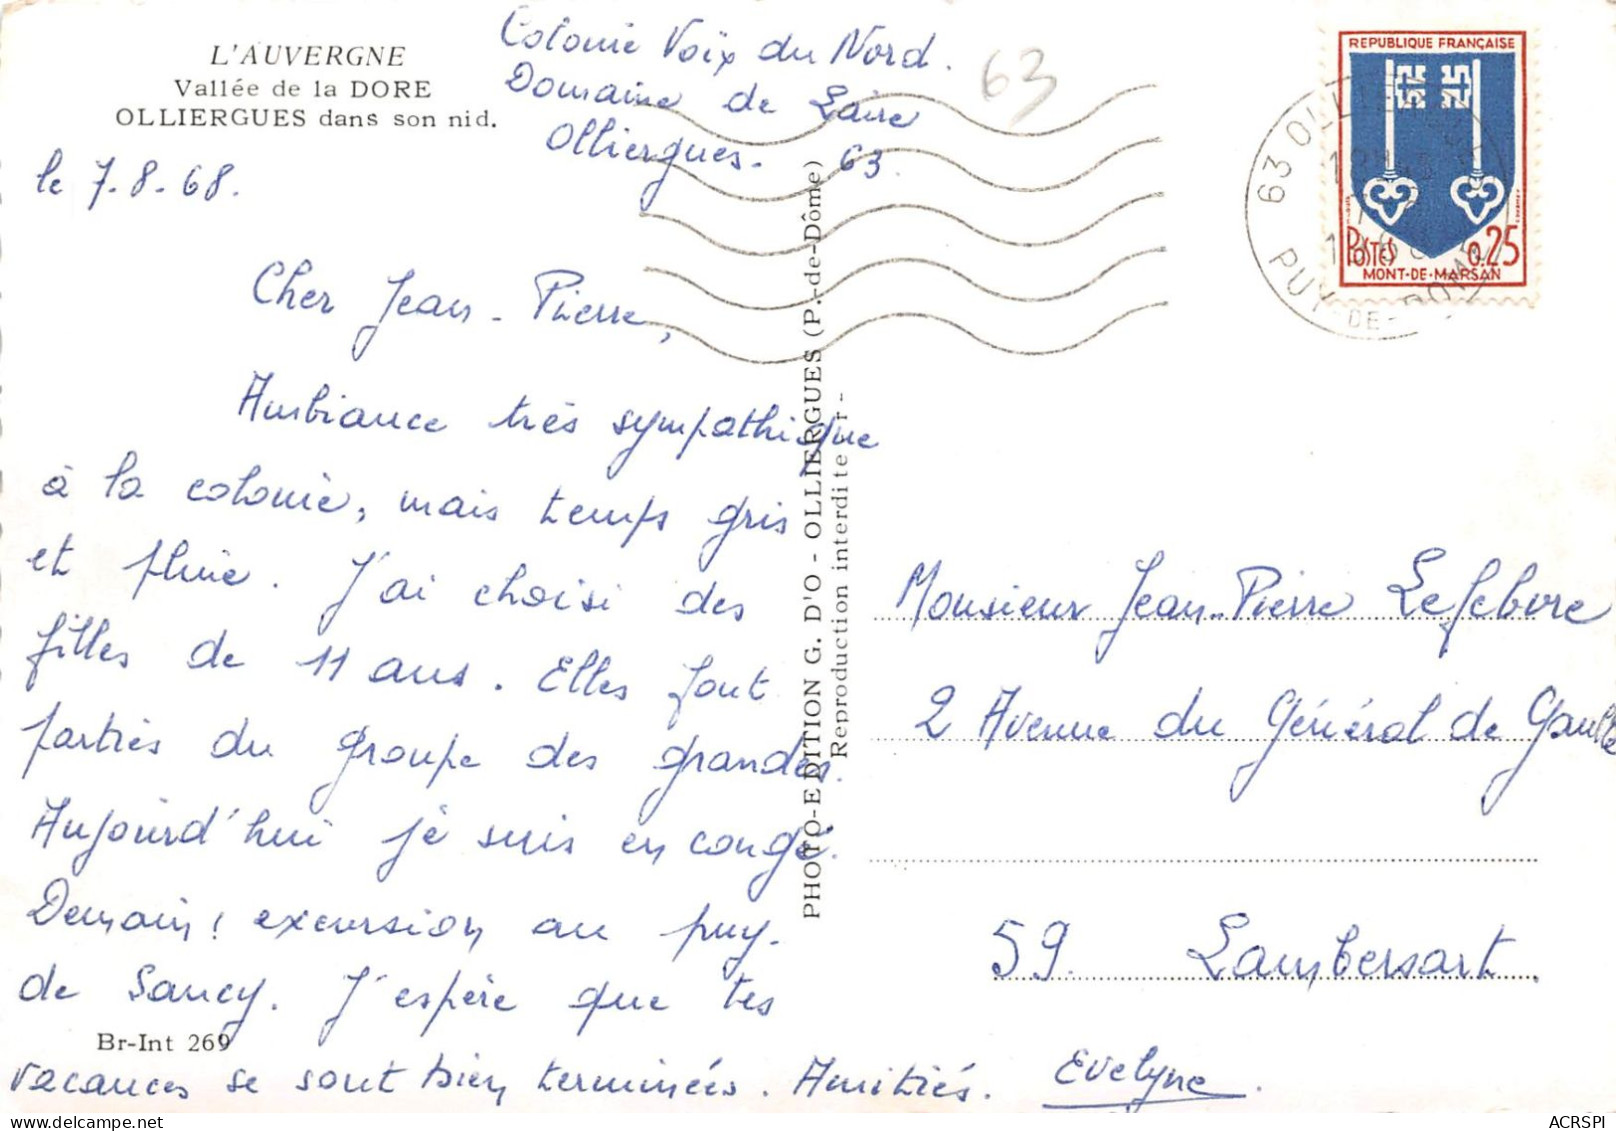 L'AUVERGNE
Vallée de la DORE
OLLIERGUES dans son nid.
Colonie Voix du Nord.
Domaine de Laire
Olliergues. 63.
63
le 7.8.68.
Cher Jean-Pierre,
Ambiance très sympathique
à la colonie, mais temps gris
et pluie. J'ai choisi des
filles de 11 ans. Elles font
parties du groupe des grandes.
Aujourd'hui je suis en congé.
Demain, excursion au puy-
de Sancy. J'espère que tes
vacances se sont bien terminées. Amitiés. Evelyne.
Br-Int 269
PHOTO-EDITION G. D'O - OLLIERGUES (P.-de-Dôme)
Reproduction interdite
REPUBLIQUE FRANÇAISE
POSTES 0,25
MONT-DE-MARSAN
63 OLLIERGUES
PUY-DE-DOME
Monsieur Jean-Pierre Lefebvre
2 Avenue du Général de Gaulle
59. Lambersart.
ACRSPI